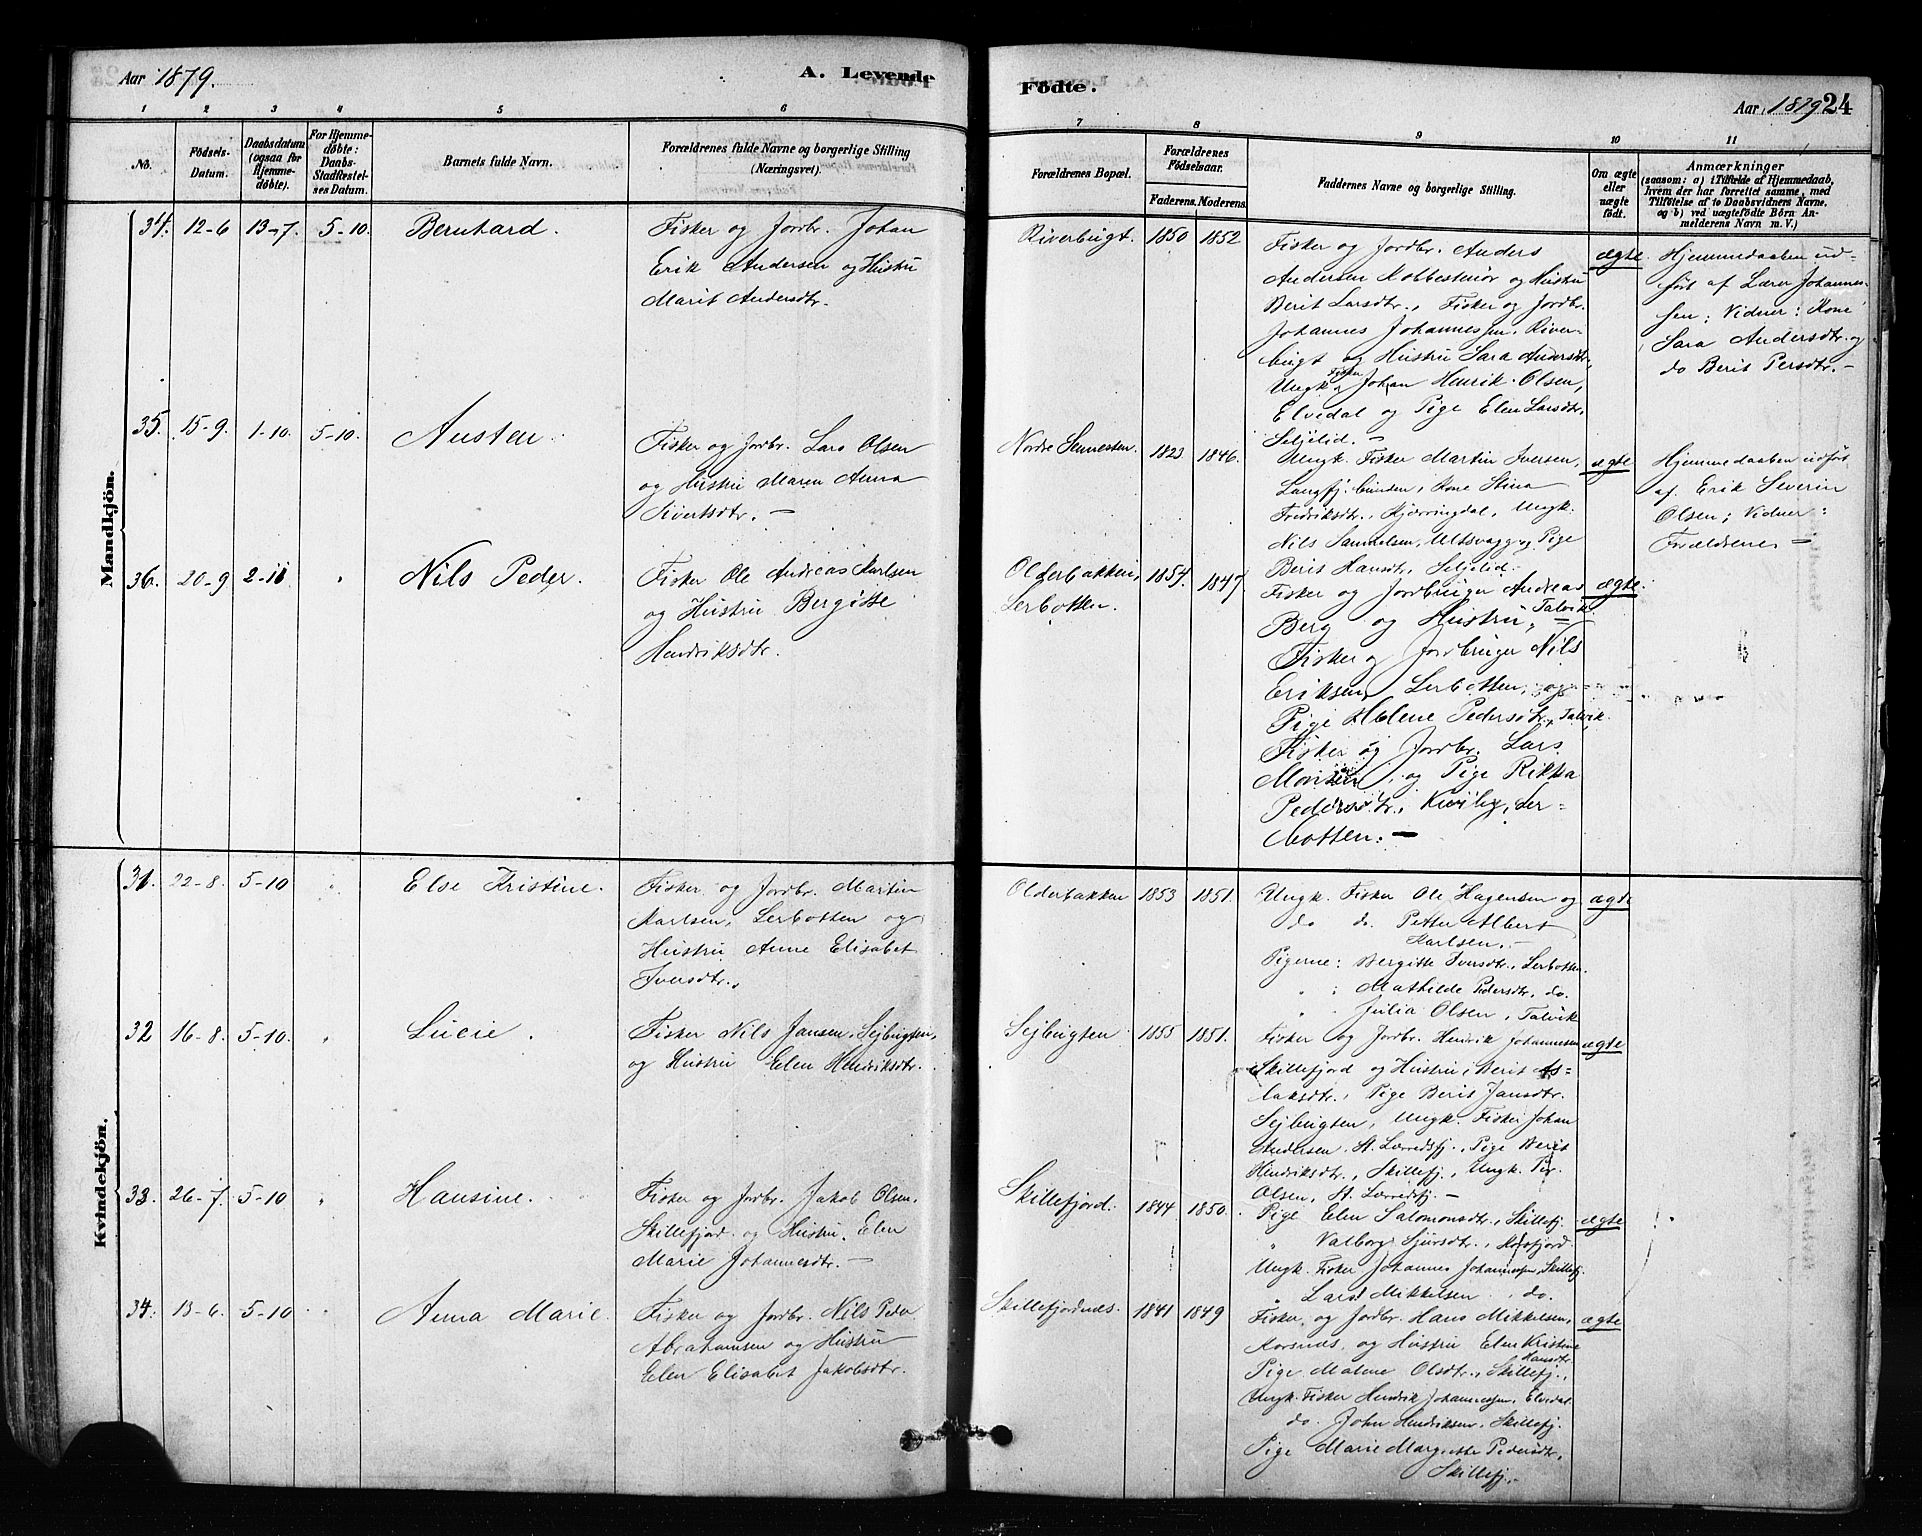 Aar 1879.
A. Levende
Födte.
Aar 1879 24
1 2 3 4 5 6 7 8 9 10 11
No.
Födsels-
Datum.
Daabsdatum
(ogsaa for
Hjemme-
döbte).
For Hjemme-
döbte:
Daabs-
Stadfæstel-
ses Datum.
Barnets fulde Navn.
Forældrenes fulde Navne og borgerlige Stilling
(Næringsvei).
Forældrenes Bopæl.
Forældrenes
Födselsaar.
Faderens. Moderens.
Faddernes Navne og borgerlige Stilling.
Om ægte
eller
uægte
födt.
Anmærkninger
(saasom: a) i Tilfælde af Hjemmedaab,
hvem der har forrettet samme, med
Tilföielse af to Daabsvidners Navne.
og b) ved uægtefödte Börn An-
melderens Navn m. V.)
Mandkjön.
34. 12-6 13-7. 5-10. Bernhard.
Fisker og Jordbr. Johan
Erik Andersen og Hustru
Marit Andersdtr.
Riverbugt. 1850 1852
Fisker og Jordbr. Anders
Andersen Kobbesteinör og Hustru
Berit Larsdtr., Fisker og Jordbr.
Johannes Johannessen, River-
bugt og Hustru Sara Andersdtr,
Ungk. Fisker Johan Henrik Olsen,
Elvedal og Pige Elen Larsdtr.
Seljelid. –
ægte.
Hjemmedaaben ud-
ført af Lærer Johannes-
sen; Vidner: Kone
Sara Andersdtr. og
do Berit Persdtr. –
35. 15-9. 1-10. 5-10. Austen.
Fisker og Jordbr. Lars Olsen
og Hustru Maren Anna
Sivertsdtr. –
Nordre 1823 1846.
Ungk. Fisker Martin Iversen,
Langfj. bunden, Kone Stina
Fredriksdtr., Kjærringdal, Ungk.
Nils Samuelsen, og Pige
Berit Hansdtr, Seljelid.
ægte
Hjemmedaaben udført
af Erik Severin
Olsen; Vidner:
Forældrene –
36. 20-9. 2-11 " Nils Peder.
Fisker Ole Andreas Karlsen
og Hustru Bergitte
Hendriksdtr.
Olderbakken,
Lerbotten. 1854. 1847
Fisker og Jordbruger Andreas
Berg og Hustru, Talvik.
Fisker og Jordbruger Nils
Eriksen, Lerbotten, og
Pige Helene Pedersdtr, Talvik.
Fisker og Jordbr. Lars
og Pige Rikka
Pedersdtr., Kviby, Ler-
botten. –
ægte.
Kvindekjön.
31. 22-8. 5-10 " Else Kristine.
Fisker og Jordbr. Martin
Karlsen, Lerbotten og
Hustru Anne Elisabet
Iversdtr.
Olderbakken 1853 1851.
Ungk. Fisker Ole Hagensen og
do do. Petter Albert
Karlsen. –
Pigerne: Bergitte Iversdtr., Lerbotten.
" : Mathilde Pedersdtr, do.
" Julia Olsen, Talvik
ægte
32 16-8. 5-10. " Lucie.
Fisker Nils Jansen, Sejbugten,
og Hustru Elen Hendriksdtr.
Sejbugten 1855 1851.
Fisker og Jordbr. Henrik Johannesen
Skillefjord og Hustru Berit As-
laksdtr., Pige Berit Jansdtr.
Sejbugten, Ungk. Fisker Johan
Andersen, St. Lerredsfj., Pige Berit
Hendriksdtr., Skillefj., Ungk. Per
Olsen, St. Lerredsfj. –
ægte
33. 26-7. 5-10 " Hansine.
Fisker og Jordbr. Jakob Olsen,
Skillefjord og Hustru, Elen
Marie Johannesdtr. –
Skillefjord. 1844. 1850.
Pige Elen Salomonsdtr., Skillefj.
" Valborg Sjursdtr., Korsfjord.
Ungk. Fisker Johannes Johannessen, Skillefj.
" Lars Mikkelsen, do.
ægte
34. 13-6. 5-10 " Anna Marie.
Fisker og Jordbr. Nils Peder
Abrahamsen og Hustru
Elen Elisabet Jakobsdtr.
Skillefjordnæs. 1841 1849
Fisker og Jordbr. Hans Mikkelsen,
Korsnæs, og Hustru Elen Kristine
Hansdtr.
Pige Malene Olsdtr., Skillefj.,
Ungk. Fisker Hendrik Johannessen, Elvedal
do. John Hendriksen, Skillefj.
Pige Marie Margrethe Pedersdtr.,
Skillefj. –
ægte